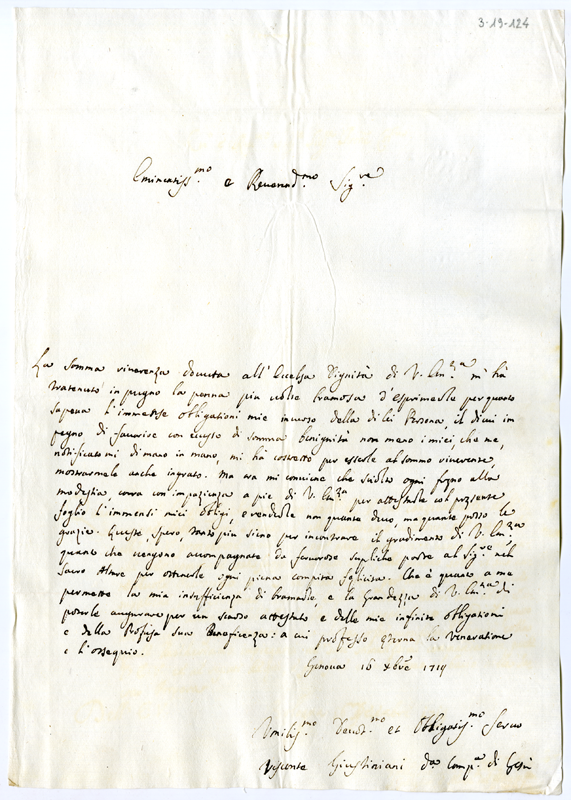 3-19-124
Eminentiss.mo e Reuerend.mo Sig.re
La somma riuerenza douuta all'Eccelsa Dignità di V. Em.za m'ha
trattenuto in pugno la penna più uolte bramosa d'esprimerle per quanto
sapeua l'immense obligationi mie inuerso della di lei Persona, il di cui im
pegno, di fauorire con eccesso di somma benignità non meno i miei, che me
notificatomi di mano in mano, mi hà costretto per essere al sommo riuerente,
mostrarmele anche ingrato. Ma ora mi conuiene che sciolto ogni freno alla
modestia, corra con impazienza a piè di V. Em.za per attestarle col presente
foglio l'immensi miei obligi, e renderle non quante deuo, ma quante posso le
grazie. Queste, spero, tanto più siino per incontrare il gradimento di V. Em.za
quanto che uengono accompagnate da feruorose supliche porte al Sig.re nel
Sacro Altare per ottenerle ogni piena compita felicità. Che è quanto a me
permette la mia insufficienza di bramarle, e la Grandezza di V. Em.za di
poterle augurare per un sincero attestato e delle mie infinite obligationi
e della Profusa sua Beneficenza: a cui professo eterna la Veneratione
e l'ossequio.
Genoua 16 Xbre 1719
Vmiliss.mo Deuot.mo et Obligatiss.mo Seruo
Visconte Giustiniani d.a Comp.a di Gesù